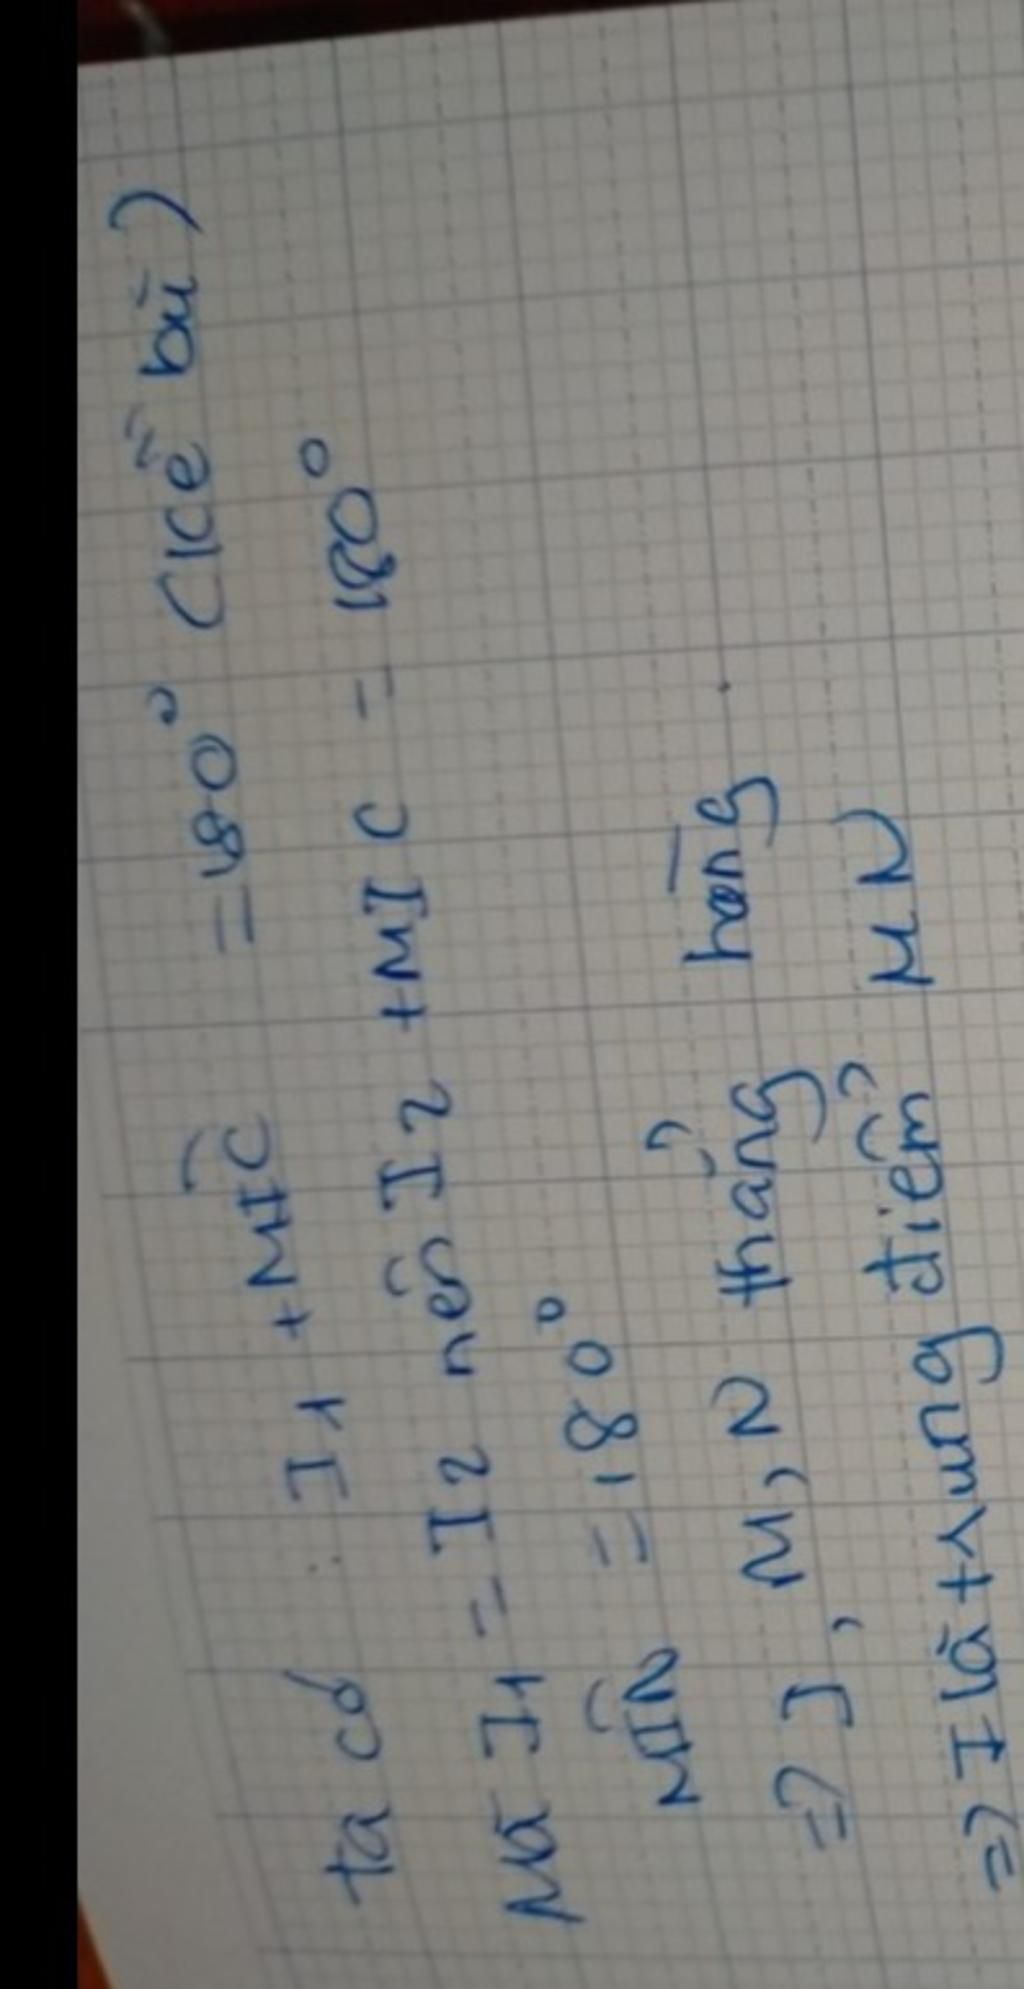 ta có I1 + MIC = 180° (kề bù)
Mà I1 = I2 nên I2 + MIC = 180°
MIN = 180°
=> I, M, N thẳng hàng
=> I là trung điểm MN